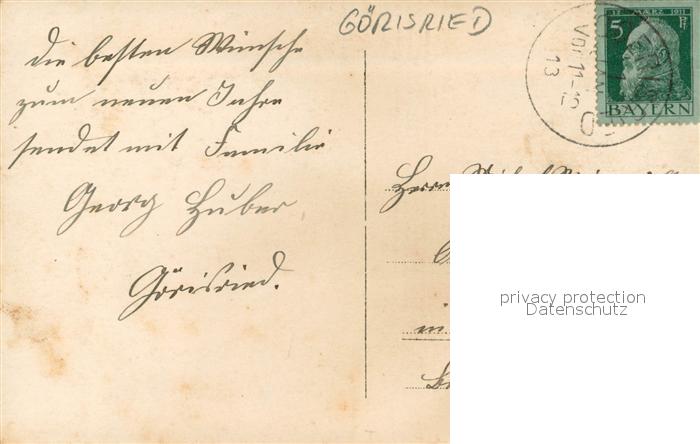 GÖRISRIED
Die besten Wünsche
zum neuen Jahre
sendet mit Familie
Georg Huber
Görisried.
12. MÄRZ 1911
5 Pf
BAYERN
Vor. 11-
13
Herrn
in
privacy protection
Datenschutz